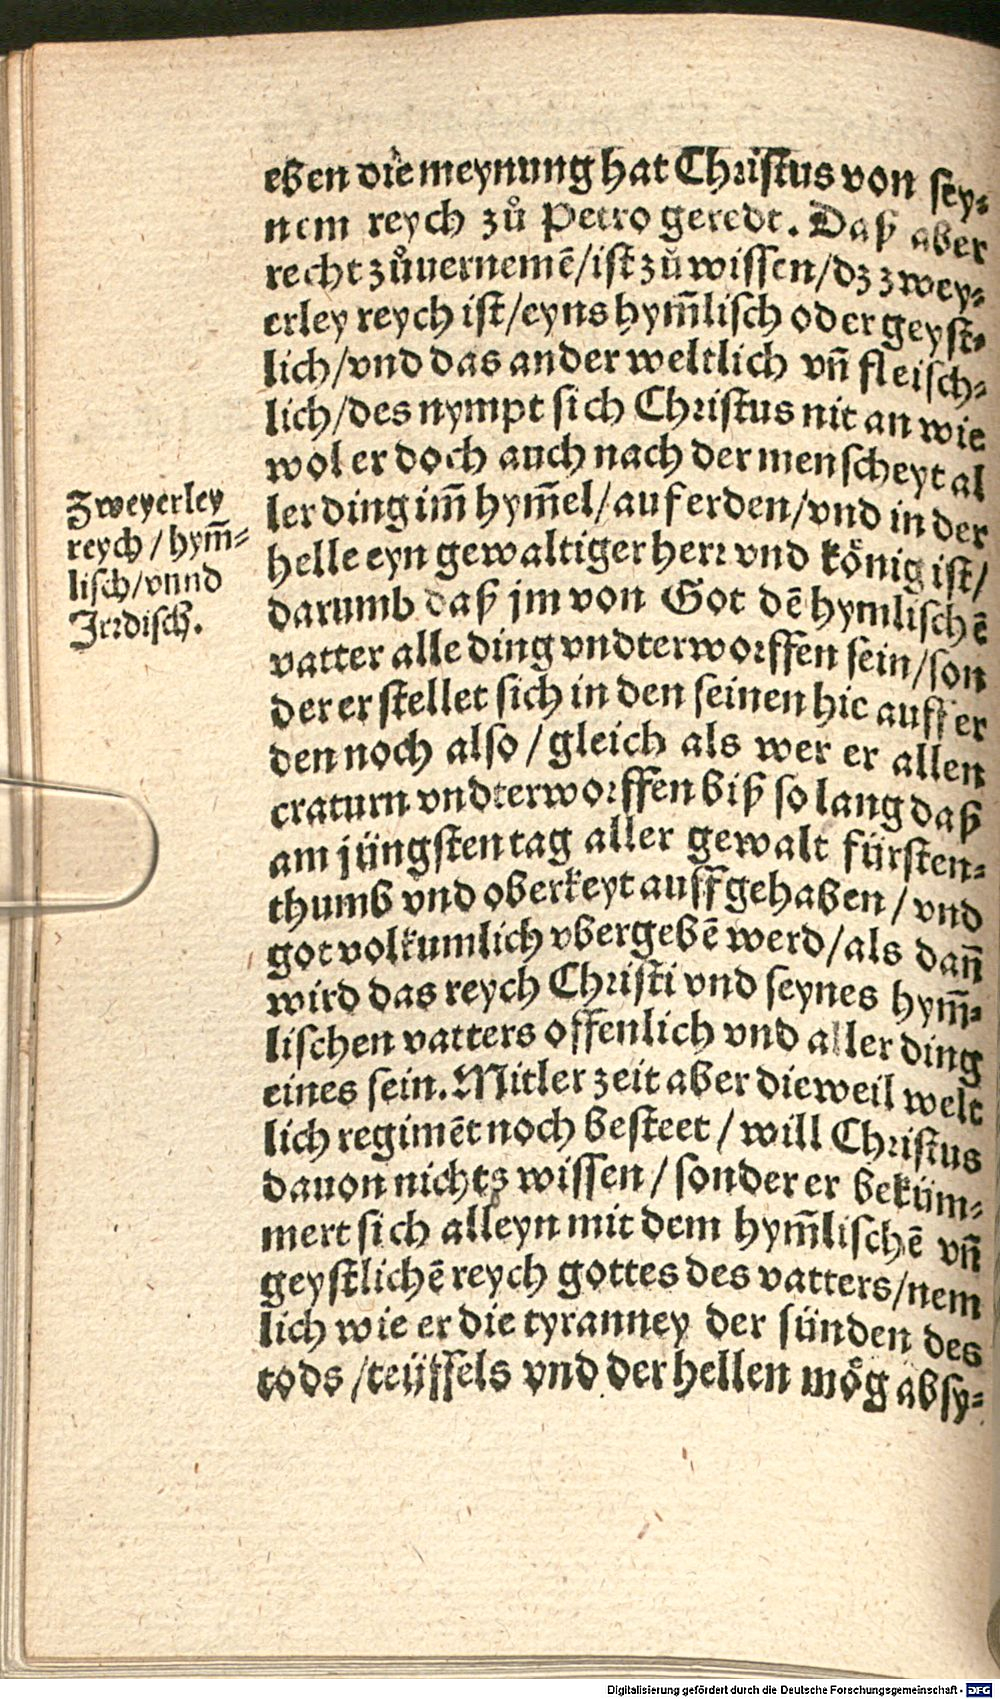 eben die meynung hat Christus von sey-
nem reych zů Petro geredt. Daß aber
recht zůuernemē/ist zů wissen/dz zwey-
erley reych ist/eyns hym̄lisch oder geyst-
lich/vnd das ander weltlich vn̄ fleisch-
lich/des nympt sich Christus nit an wie
wol er doch auch nach der menscheyt al
ler ding im̄ hym̄el/auf erden/vnd in der
helle eyn gewaltiger herr vnd kőnig ist/
darumb daß jm von Got dē hymlischē
vatter alle ding vndterworffen sein/son
der er stellet sich in den seinen hie auff er
den noch also/gleich als wer er allen
craturn vndterworffen biß so lang daß
am jüngsten tag aller gewalt fürsten-
thumb vnd oberkeyt auffgehaben/vnd
got volkumlich vbergebē werd/als dan̄
wird das reych Christi vnd seynes hym̄-
lischen vatters offenlich vnd aller ding
eines sein. Mitler zeit aber dieweil welt
lich regimēt noch besteet/will Christus
dauon nichts wissen/sonder er beküm-
mert sich alleyn mit dem hym̄lischē vn̄
geystlichē reych gottes des vatters/nem
lich wie er die tyranney der sünden des
tods/teüffels vnd der hellen mőg absy-
Zweyerley
reych/hym̄-
lisch/vnnd
Jrrdisch.
Digitalisierung gefördert durch die Deutsche Forschungsgemeinschaft - DFG